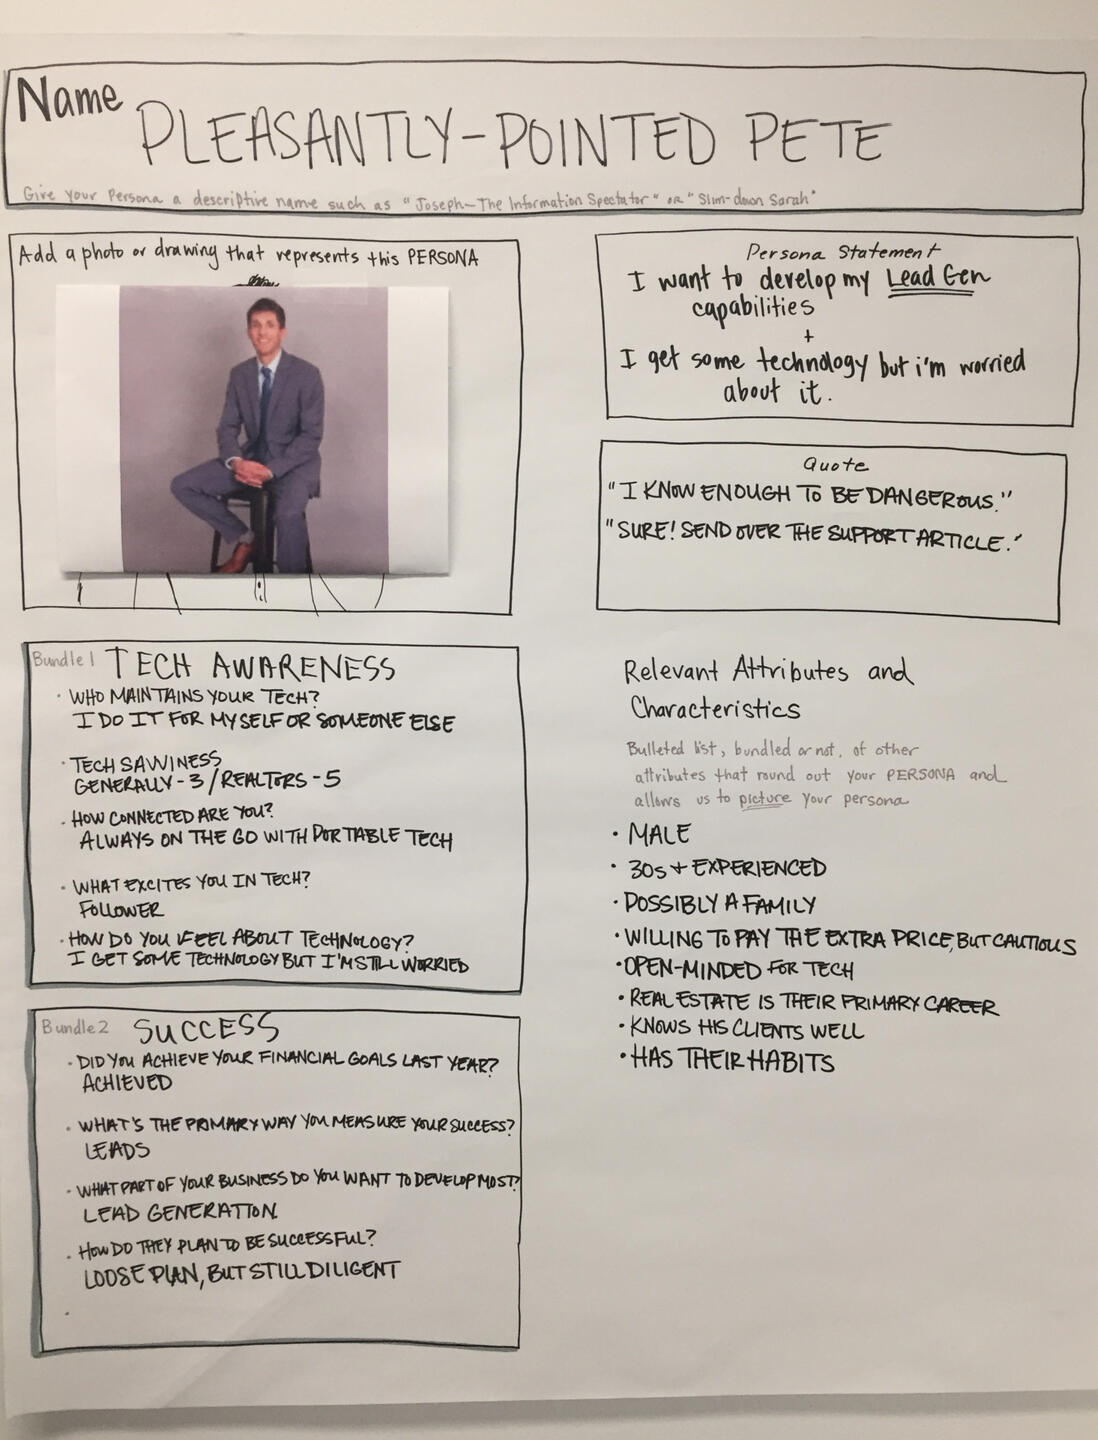 Name
PLEASANTLY-POINTED PETE
Give your Persona a descriptive name such as "Joseph-The Information Spectator" or "Slim-down Sarah"
Add a photo or drawing that represents this PERSONA
Persona Statement
I want to develop my Lead Gen
capabilities
+
I get some technology but i'm worried
about it.
Quote
"I KNOW ENOUGH TO BE DANGEROUS."
"SURE! SEND OVER THE SUPPORT ARTICLE."
Bundle 1 TECH AWARENESS
· WHO MAINTAINS YOUR TECH?
I DO IT FOR MYSELF OR SOMEONE ELSE
· TECH SAVVINESS
GENERALLY - 3 / REALTORS - 5
· HOW CONNECTED ARE YOU?
ALWAYS ON THE GO WITH PORTABLE TECH
· WHAT EXCITES YOU IN TECH?
FOLLOWER
· HOW DO YOU FEEL ABOUT TECHNOLOGY?
I GET SOME TECHNOLOGY BUT I'M STILL WORRIED
Bundle 2 SUCCESS
· DID YOU ACHIEVE YOUR FINANCIAL GOALS LAST YEAR?
ACHIEVED
· WHAT'S THE PRIMARY WAY YOU MEASURE YOUR SUCCESS?
LEADS
· WHAT PART OF YOUR BUSINESS DO YOU WANT TO DEVELOP MOST?
LEAD GENERATION
· HOW DO THEY PLAN TO BE SUCCESSFUL?
LOOSE PLAN, BUT STILL DILIGENT
·
Relevant Attributes and
Characteristics
Bulleted list, bundled or not, of other
attributes that round out your PERSONA and
allows us to picture your persona
· MALE
· 30s + EXPERIENCED
· POSSIBLY A FAMILY
· WILLING TO PAY THE EXTRA PRICE, BUT CAUTIOUS
· OPEN-MINDED FOR TECH
· REAL ESTATE IS THEIR PRIMARY CAREER
· KNOWS HIS CLIENTS WELL
· HAS THEIR HABITS